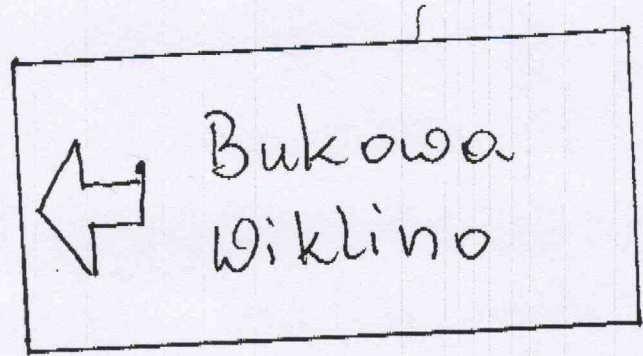 Bukowa
Wiklino